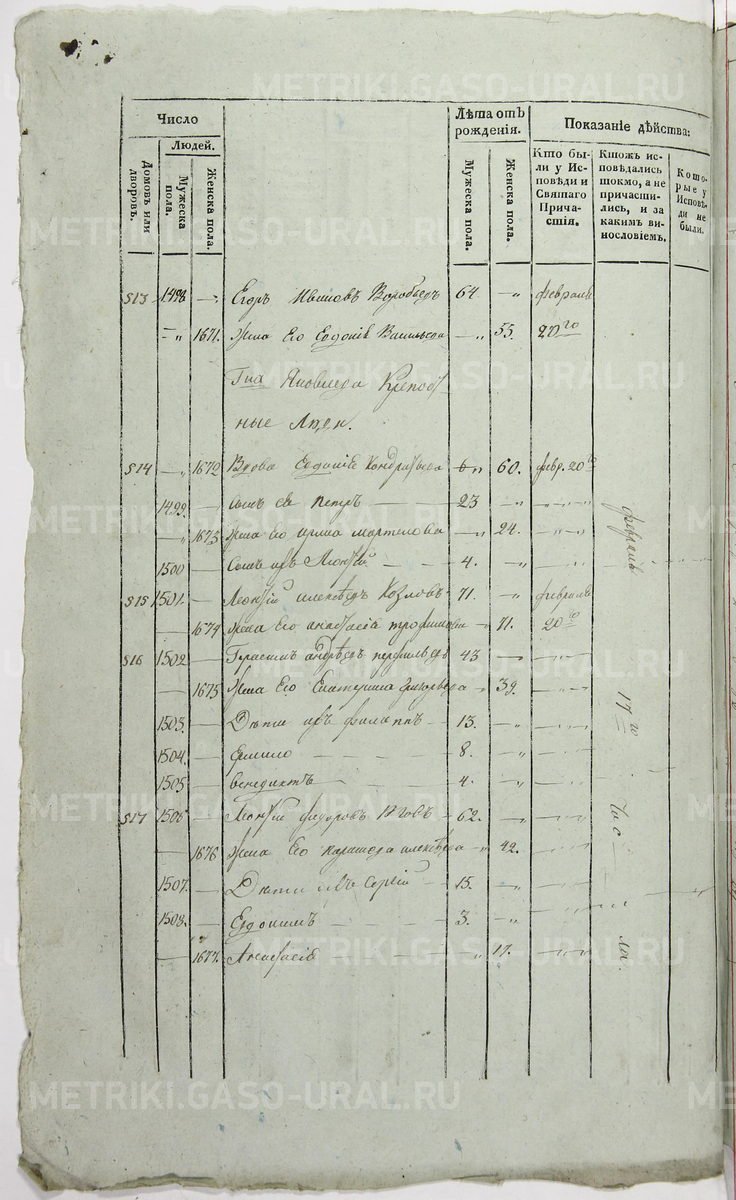 METRIKI.GASO-URAL.RU
Число
Лѣта отъ рожденія.
Показаніе дѣйства:
Людей.
Домовъ или дворовъ.
Мужеска пола.
Женска пола.
Мужеска пола.
Женска пола.
Кто бы-
ли у Ис-
повѣди и
Святаго
Прича-
стія.
Ктожъ ис-
повѣдались
токмо, а не
причасти-
лись, и за
какимъ ви-
нословіемъ.
Кото-
рые у
Исповѣ-
ди не
были.
513 1498 — Егоръ Ивановъ 64 — февраля
— 1671. жена Его Евдокія — 55. 20го
Гна Яковлева Крепост
ные
514 — 1672 Вдова Евдокія Кондратьева 60. февр. 20го
1499. — сынъ ея Петръ — 23
— 1673 жена его мартемова — 24.
1500 — Сынъ ихъ — 4.
515 1501 — алексѣевъ Козловъ 71. — февраля
— 1674 жена Его анастасія трофимова 71. 20го
516 1502 — Герасимъ андрѣевъ 43
— 1675 жена Его Екатерина григорьева 39.
1503. — Дѣти ихъ филиппъ — 13.
1504. — ермило — 8.
1505 — венедиктъ — 4.
517 1506 — федоровъ 62.
— 1676 жена Его алексѣева 42.
1507. — Дѣти ихъ Сергій — 15.
1508. — Евдокимъ — 3.
— 1677. Анастасія 17.
февраля
17го